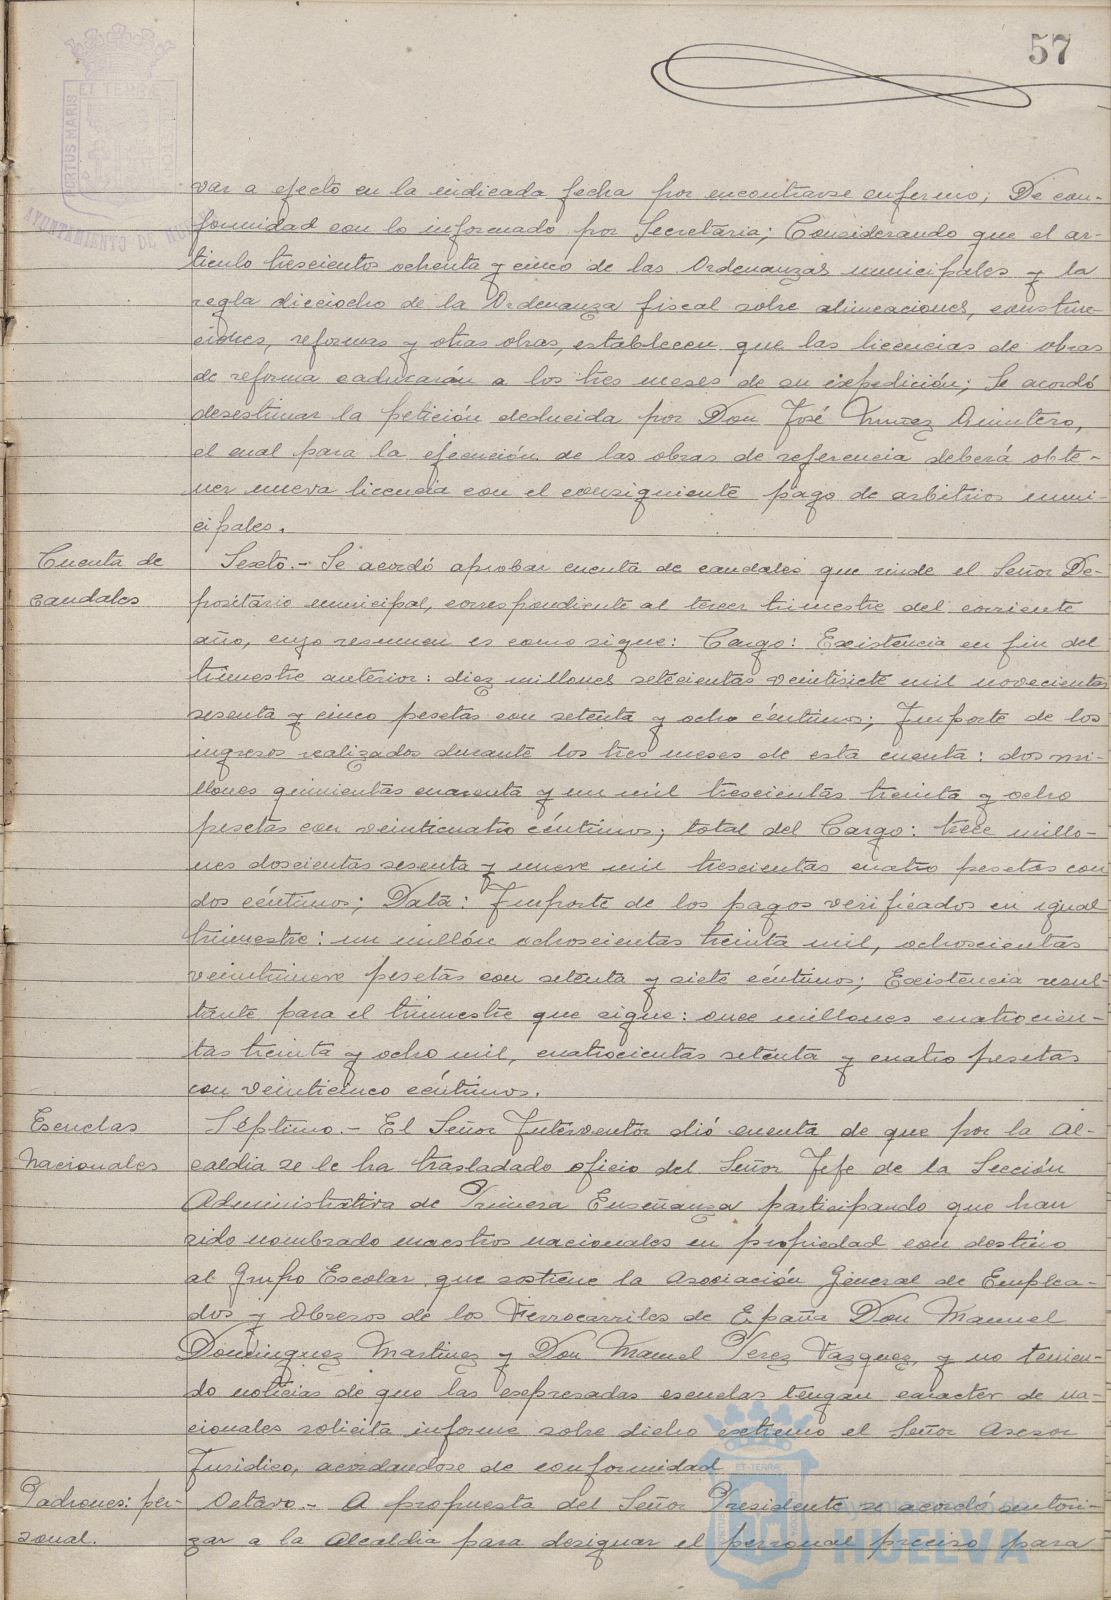 57
ET TERRÆ
PORTUS MARIS
AYUNTAMIENTO DE HUELVA
var a efecto en la indicada fecha por encontrarse enfermo; De con-
formidad con lo informado por Secretaria; Considerando que el ar-
ticulo trescientos ochenta y cinco de las Ordenanzas municipales y la
regla dieciocho de la Ordenanza fiscal sobre alineaciones, construc-
ciones, reformas y otras obras, establecen que las licencias de obras
de reforma caducarán a los tres meses de su expedición; Se acordó
desestimar la petición deducida por Don José Nuñez Quintero,
el cual para la ejecución de las obras de referencia deberá obte-
ner nueva licencia con el consiguiente pago de arbitrios muni-
cipales.
Cuenta de caudales
Sexto.- Se acordó aprobar cuenta de caudales que rinde el Señor De-
positario municipal, correspondiente al tercer trimestre del corriente
año, cuyo resumen es como sigue: Cargo: Existencia en fin del
trimestre anterior: diez millones setecientas veintisiete mil novecientas
sesenta y cinco pesetas con setenta y ocho céntimos; Importe de los
ingresos realizados durante los tres meses de esta cuenta: dos mi-
llones quinientas cuarenta y un mil trescientas treinta y ocho
pesetas con veinticuatro céntimos; total del Cargo: trece millo-
nes doscientas sesenta y nueve mil trescientas cuatro pesetas con
dos céntimos; Data: Importe de los pagos verificados en igual
trimestre: un millón ochoscientas treinta mil, ochoscientas
veintinueve pesetas con setenta y siete céntimos; Existencia resul-
tante para el trimestre que sigue: once millones cuatrocien-
tas treinta y ocho mil, cuatrocientas setenta y cuatro pesetas
con veinticinco céntimos.
Escuelas Nacionales
Séptimo.- El Señor Interventor dió cuenta de que por la Al-
caldia se le ha trasladado oficio del Señor Jefe de la Sección
Administrativa de Primera Enseñanza participando que han
sido nombrado maestros nacionales en propiedad con destino
al Grupo Escolar que sostiene la Asociación General de Emplea-
dos y Obreros de los Ferrocarriles de España Don Manuel
Dominguez Martinez y Don Manuel Perez Vazquez, y no tenien-
do noticias de que las expresadas escuelas tengan caracter de na-
cionales solicita informe sobre dicho extremo el Señor Asesor
Juridico, acordandose de conformidad
Padrones: per-
sonal.
Octavo.- A propuesta del Señor Presidente se acordó autori-
zar a la Alcaldia para designar el personal preciso para
Ayuntamiento de
HUELVA